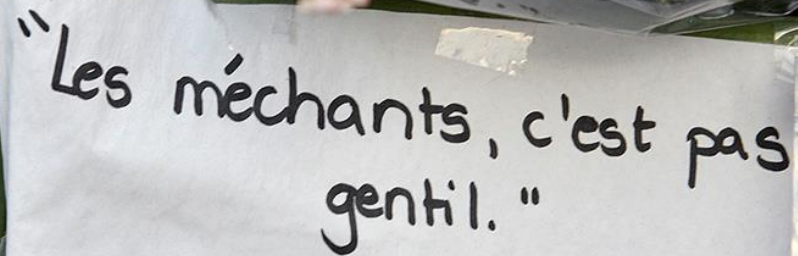 "Les méchants, c'est pas
gentil."